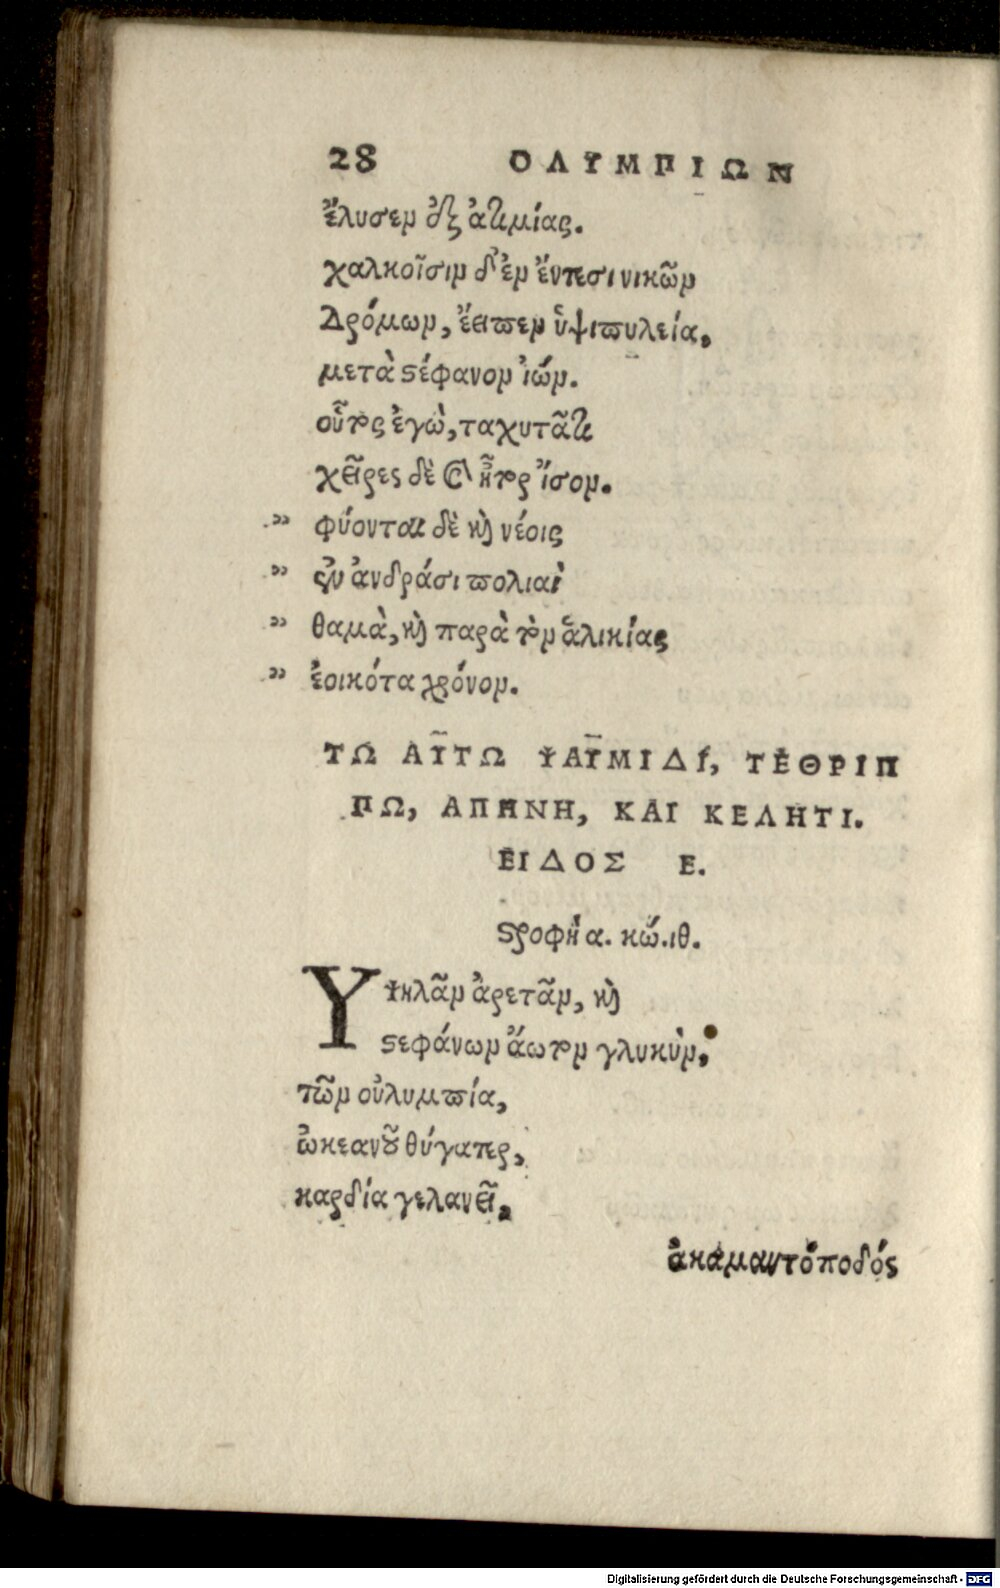 28 ΟΛΥΜΠΙΩΝ
ἔλυσεν ἐξ ἀτιμίας.
χαλκοῖσιν δ' ἐν ἔντεσι νικῶν
Δρόμων, ἔειπεν ὑψιπυλεία,
μετὰ στέφανον ἰών.
οὗτος ἐγὼ, ταχυτᾶτι
χεῖρες δὲ καὶ ἦτορ ἴσον.
" φύονται δὲ καὶ νέοις
" ἐν ἀνδράσι πολιαὶ
" θαμὰ, καὶ παρὰ τὸν ἁλικίας
" ἐοικότα χρόνον.
ΤΩ ΑΥ͂ΤΩ ΨΑΥ͂ΜΙΔΙ, ΤΕΘΡΙΠ
ΠΩ, ΑΠΗΝΗ, ΚΑΙ ΚΕΛΗΤΙ.
ΕΙΔΟΣ Ε.
στροφὴ α. κώ. ιθ.
Υψηλᾶν ἀρετᾶν, καὶ
στεφάνων ἄωτον γλυκὺν,
τῶν οὐλυμπία,
ὠκεανοῦ θύγατερ,
καρδία γελανεῖ,
ἀκαμαντόποδός
Digitalisierung gefördert durch die Deutsche Forschungsgemeinschaft - DFG